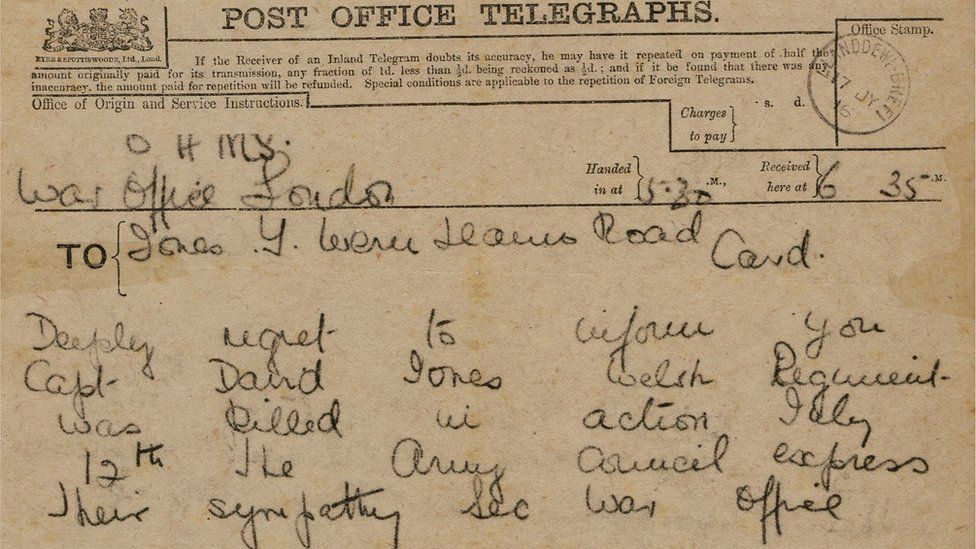 POST OFFICE TELEGRAPHS.
EYRE & SPOTTISWOODE, Ltd., Lond.
If the Receiver of an Inland Telegram doubts its accuracy, he may have it repeated on payment of half the
amount originally paid for its transmission, any fraction of 1d. less than ½d. being reckoned as ½d.; and if it be found that there was any
inaccuracy, the amount paid for repetition will be refunded. Special conditions are applicable to the repetition of Foreign Telegrams.
Office Stamp.
17 JY 16
Office of Origin and Service Instructions.
Charges to pay
s. d.
O H M S.
War Office London
Handed in at 5.30 .M.,
Received here at 6 35 .M.
TO Jones Road Card.
Deeply regret to inform you
Capt David Jones Welsh Regiment
was killed in action July
12th The Army Council express
their sympathy Sec War Office